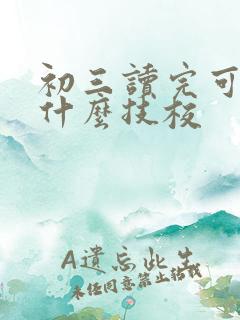 初三讀完可
什麼技校
A遺忘此生
未任同意禁止转载